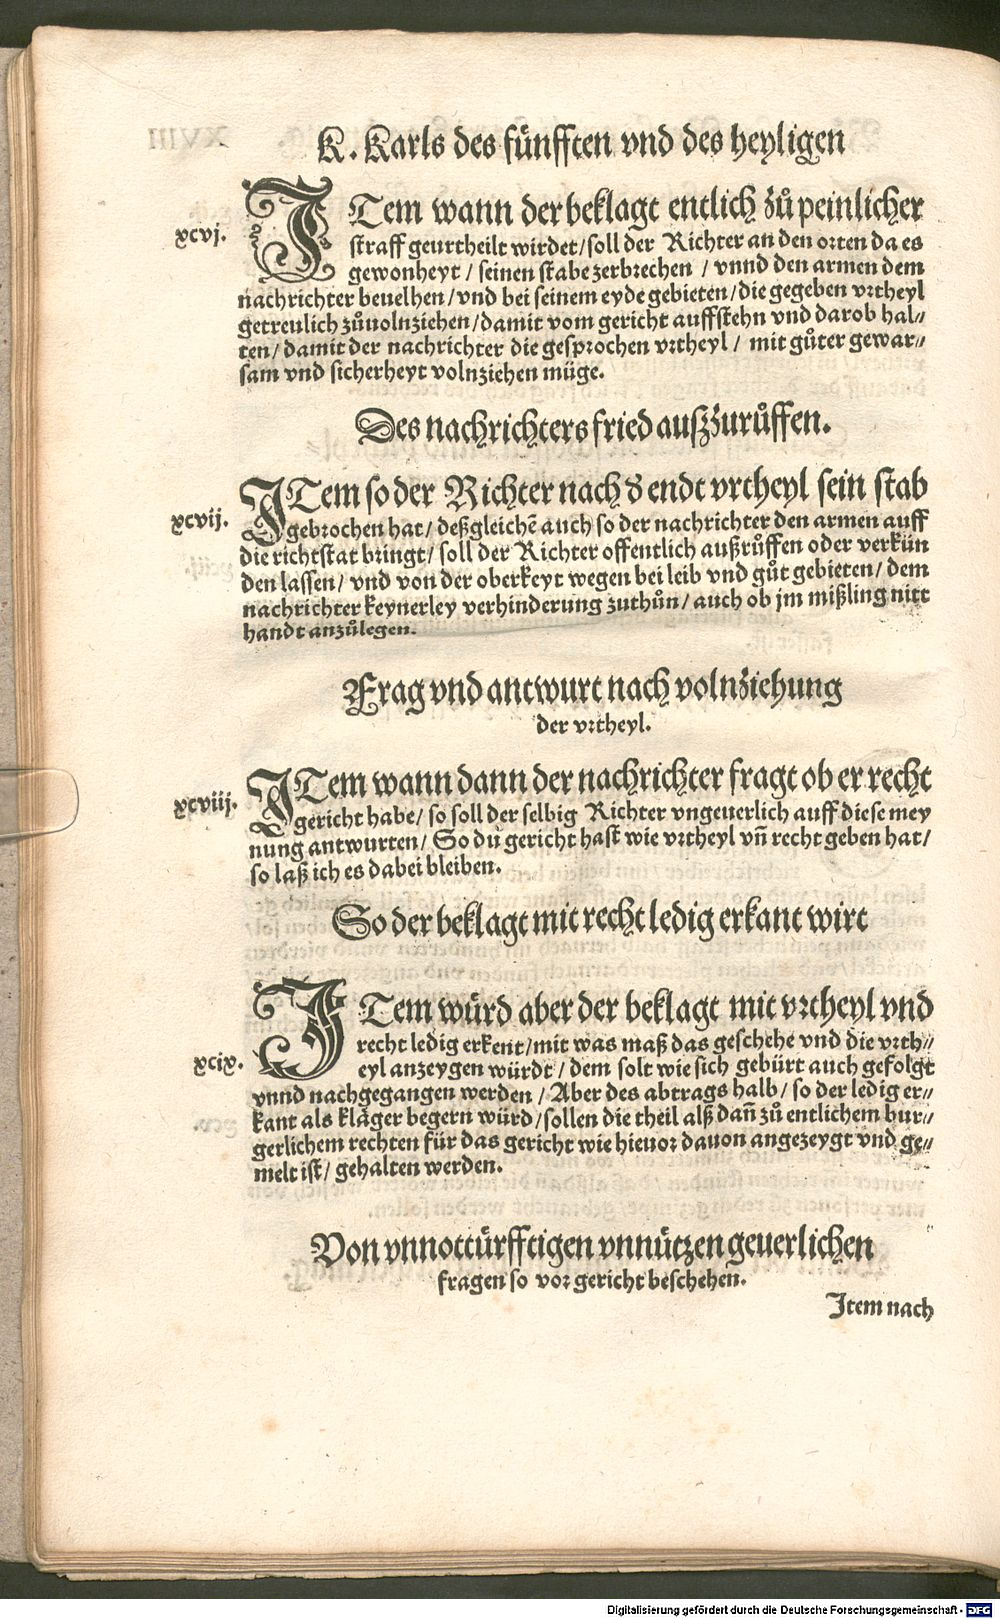 K. Karls des fünfften vnd des heyligen
xcvj.
ITem wann der beklagt entlich zů peinlicher
straff geurtheilt wirdet/soll der Richter an den orten da es
gewonheyt / seinen stabe zerbrechen / vnnd den armen dem
nachrichter beuelhen/vnd bei seinem eyde gebieten/die gegeben vrtheyl
getreulich zůuolnziehen/damit vom gericht auffstehn vnd darob hal⸗
ten/damit der nachrichter die gesprochen vrtheyl / mit gůter gewar⸗
sam vnd sicherheyt volnziehen müge.
Des nachrichters fried außzurůffen.
xcvij.
ITem so der Richter nach d̕ endt vrtheyl sein stab
gebrochen hat/ deßgleichē auch so der nachrichter den armen auff
die richtstat bringt/ soll der Richter offentlich außrůffen oder verkün
den lassen/ vnd von der oberkeyt wegen bei leib vnd gůt gebieten/ dem
nachrichter keynerley verhinderung zuthůn/ auch ob jm mißling nitt
handt anzůlegen.
Frag vnd antwurt nach volnziehung
der vrtheyl.
xcviij.
ITem wann dann der nachrichter fragt ob er recht
gericht habe/ so soll der selbig Richter vngeuerlich auff diese mey
nung antwurten/ So du gericht hast wie vrtheyl vñ recht geben hat/
so laß ich es dabei bleiben.
So der beklagt mit recht ledig erkant wirt
xcix.
ITem würd aber der beklagt mit vrtheyl vnd
recht ledig erkent/mit was maß das geschehe vnd die vrth⸗
eyl anzeygen würdt/ dem solt wie sich gebürt auch gefolgt
vnnd nachgegangen werden / Aber des abtrags halb/ so der ledig er⸗
kant als kläger begern würd/sollen die theil alß dañ zů entlichem bur⸗
gerlichem rechten für das gericht wie hieuor dauon angezeygt vnd ge⸗
melt ist/ gehalten werden.
Von vnnottürfftigen vnnützen geuerlichen
fragen so vor gericht beschehen.
Item nach
Digitalisierung gefördert durch die Deutsche Forschungsgemeinschaft - DFG